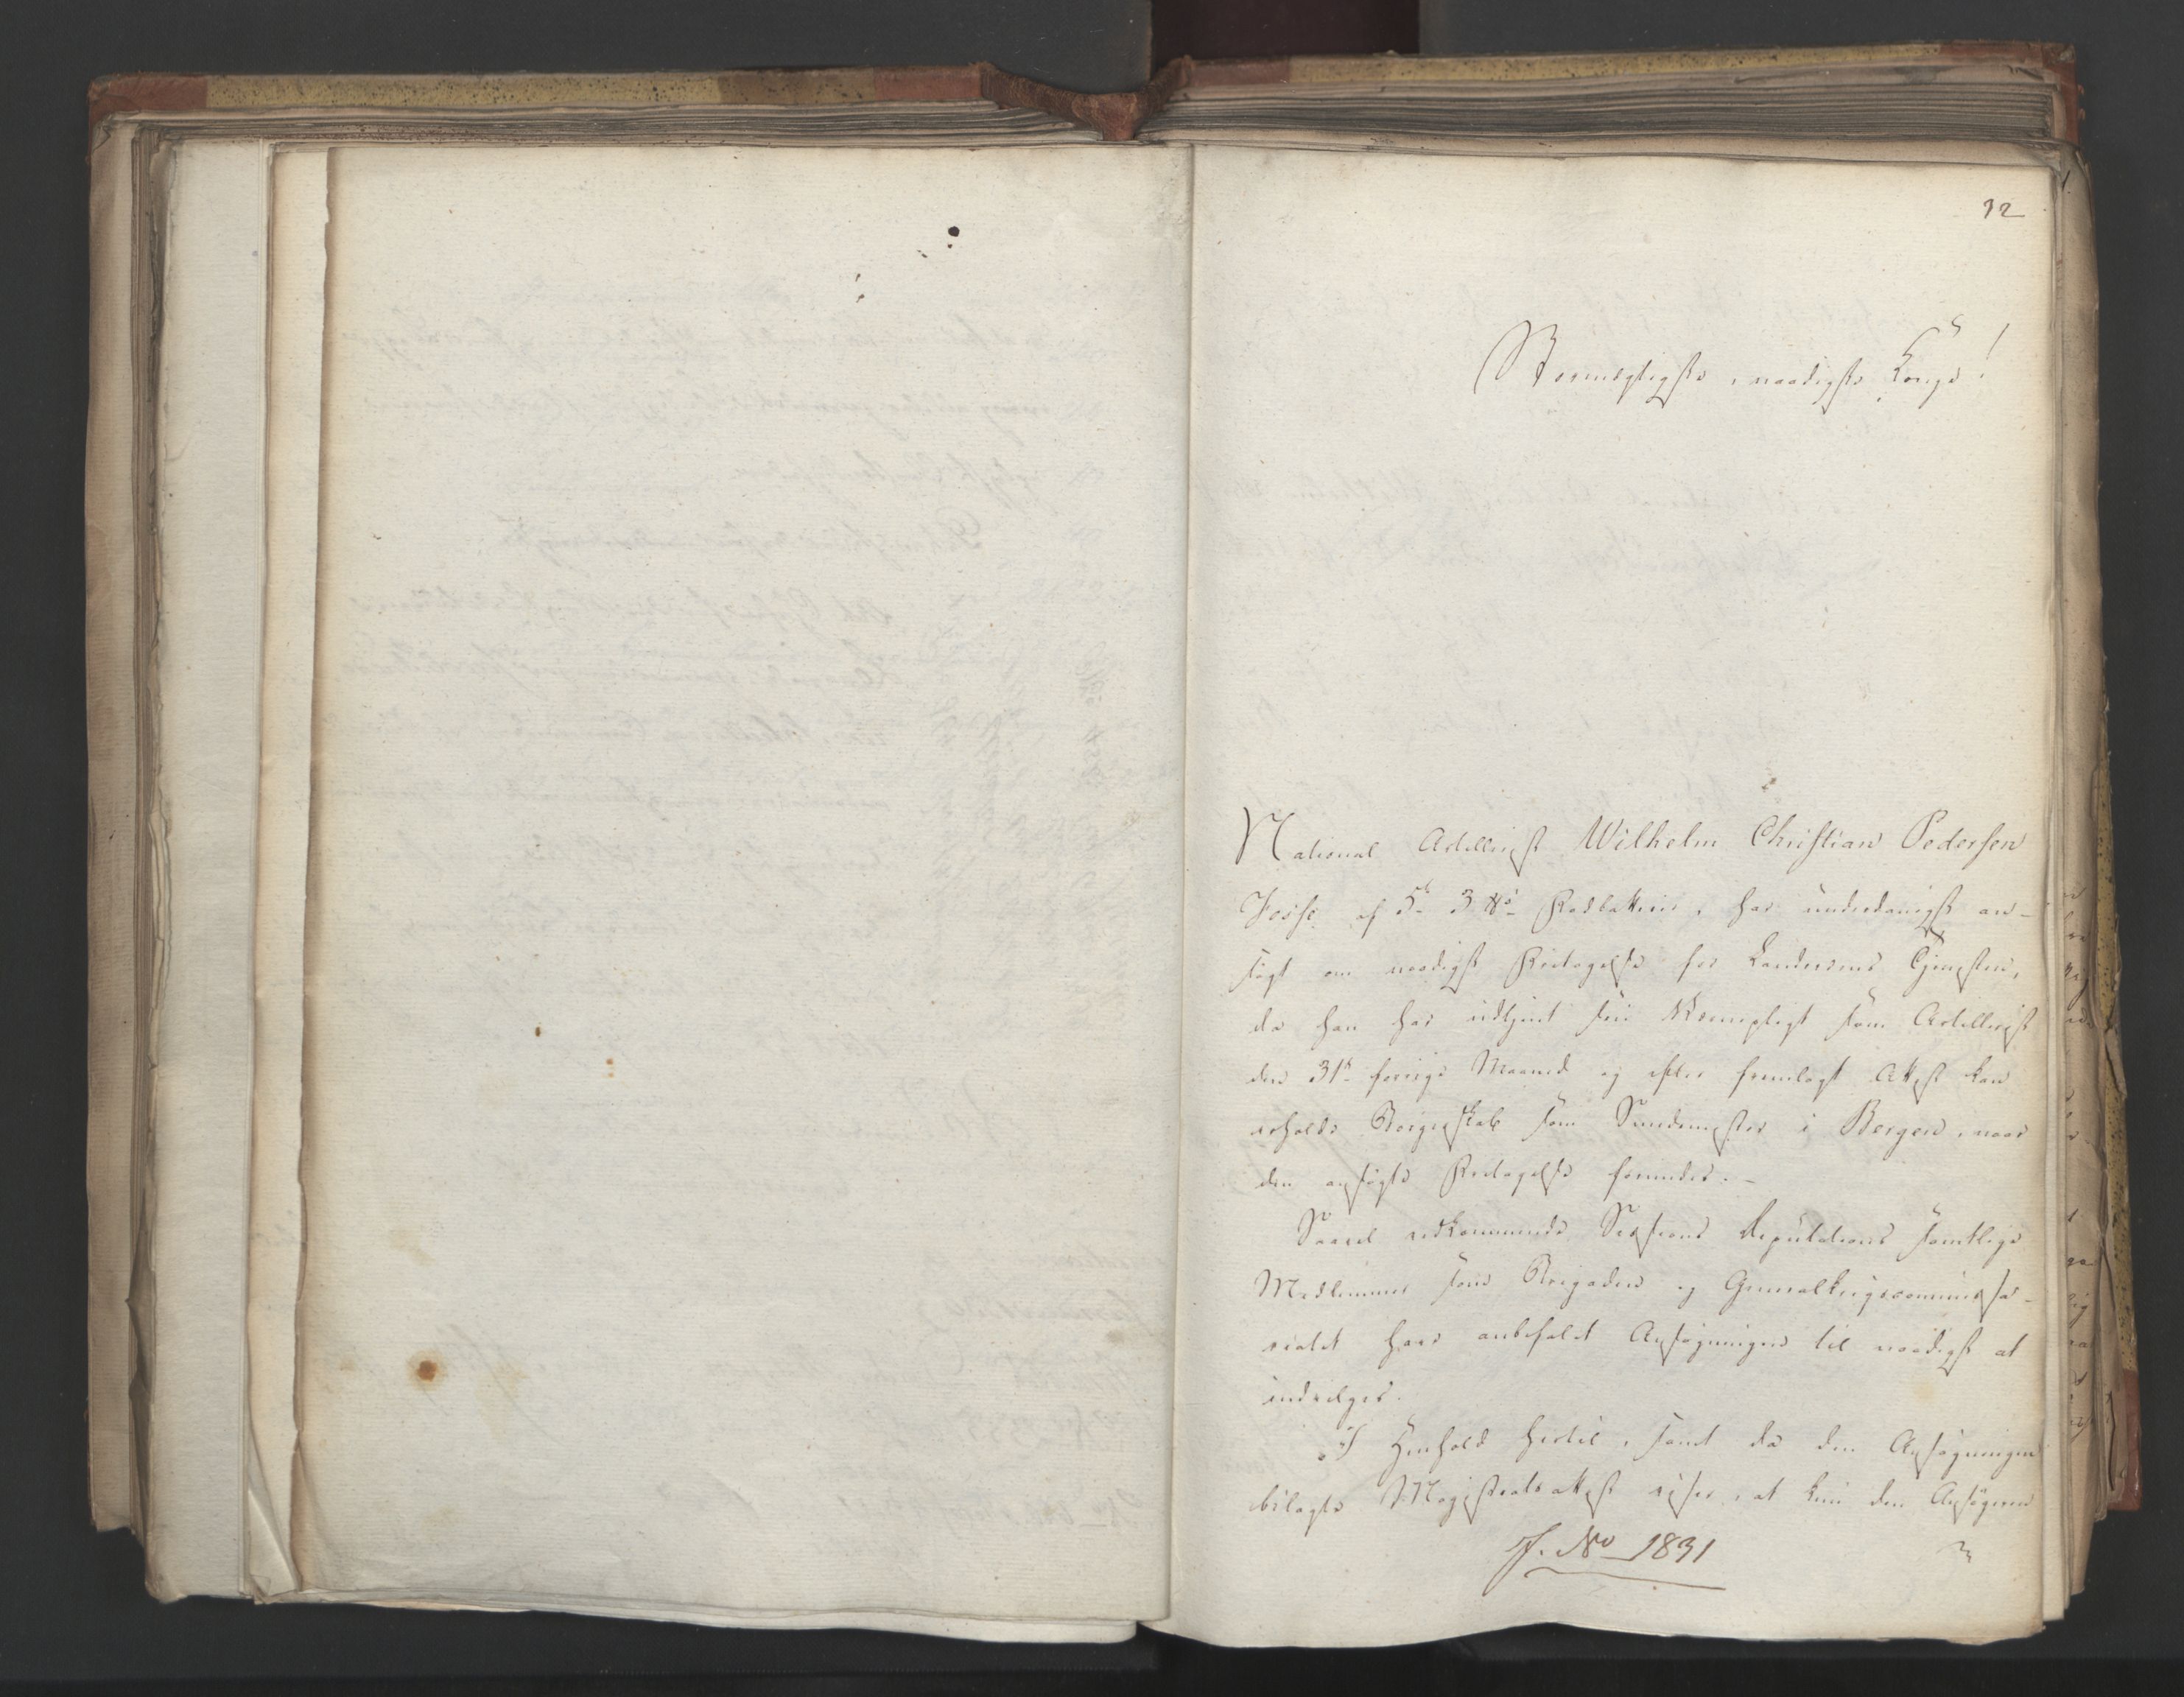 32
Stormægtigste, naadigste Konge!
National Artillerist Wilhelm Christian Pedersen
Fosse af 5te 3 ℔s Fodbatterie, har underdanigst an-
søgt om naadigst Fritagelse for Landeværns Tjenesten,
da han har udtjent sin Værnepligt som Artillerist
den 31te forrige Maaned og efter fremlagt Attest kan
erholde Borgerskab som Svendemester i Bergen, naar
den ansøgte Fritagelse forundes. -
Saavel vedkommende Sessions Deputations samtlige
Medlemmer som Brigaden og Generalkrigscommissa-
riatet have anbefalet Ansøgningen til naadigst at
indvilges.
I Henhold hertil, samt da den Ansøgningen
bilagte Magistratsattest viser, at kun den Ansøgeren
J. No 1831